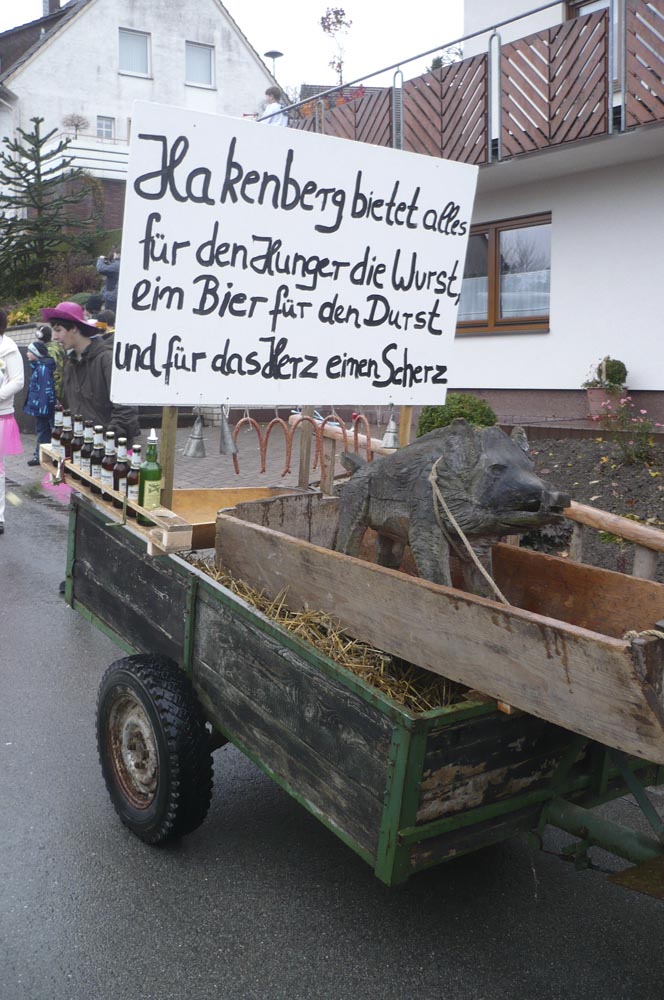 Hakenberg bietet alles
für den Hunger die Wurst,
ein Bier für den Durst
und für das Herz einen Scherz